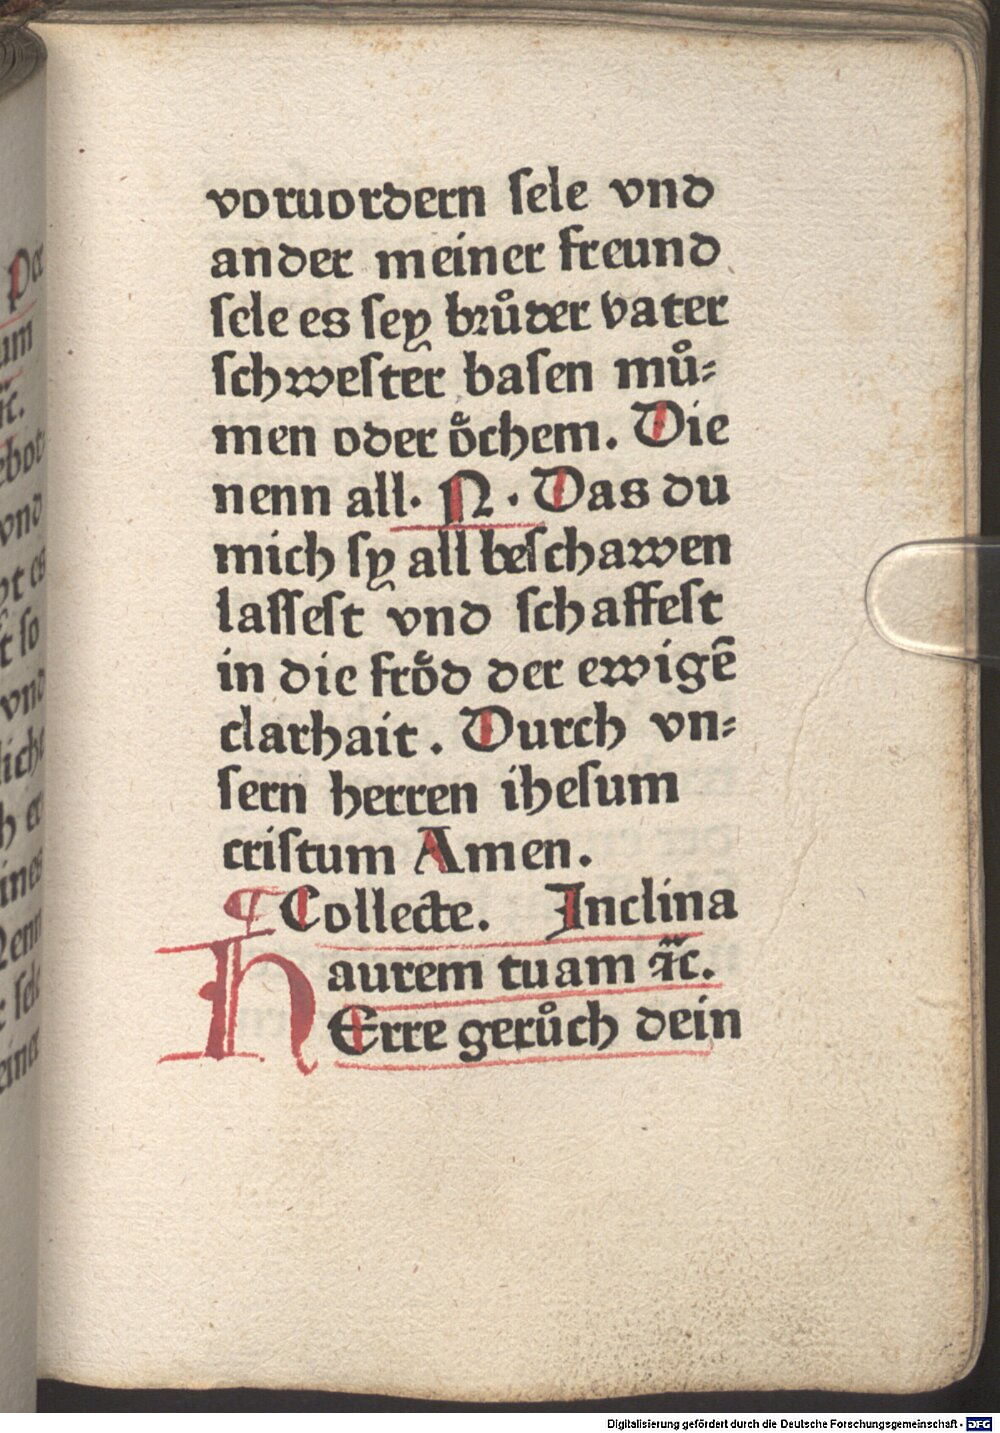 voruordern ſele vnd
ander meiner freund
ſele es ſey brůder vater
ſchweſter baſen mů⸗
men oder oͤchem. Die
nenn all. N. Das du
mich ſy all beſchawen
laſſeſt vnd ſchaffeſt
in die froͤd der ewigē
clarhait. Durch vn⸗
ſern herren iheſum
criſtum Amen.
¶ Collecte. Inclina
aurem tuam ꝛc̄.
HErre gerůch dein
Digitalisierung gefördert durch die Deutsche Forschungsgemeinschaft - DFG